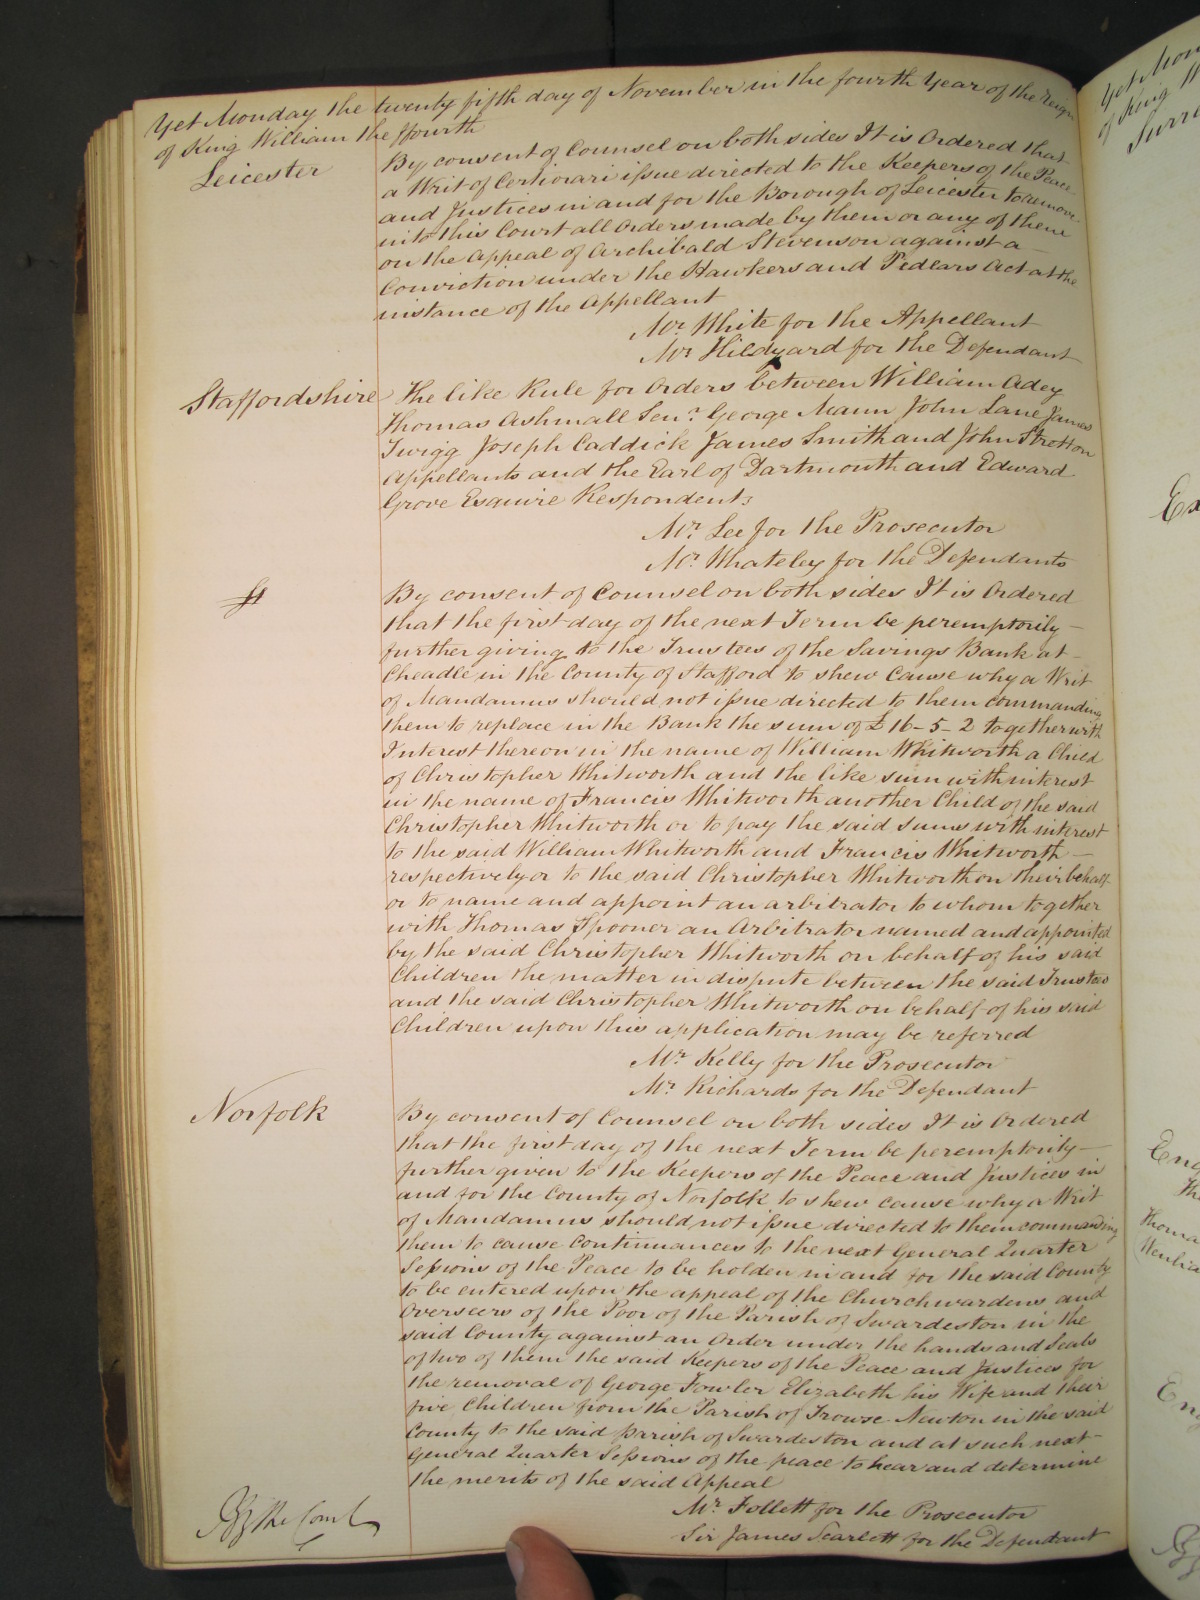 Yet Monday the twenty fifth day of November in the fourth Year of the reign
of King William the ffourth
Leicester
By consent of Counsel on both sides It is Ordered that
a Writ of Certiorari issue directed to the Keepers of the Peace
and Justices in and for the Borough of Leicester to remove
into this Court all Orders made by them or any of them
on the Appeal of Archibald Stevenson against a
Conviction under the Hawkers and Pedlars Act at the
instance of the Appellant
Mr. White for the Appellant
Mr Hildyard for the Defendant
Staffordshire
The like Rule for Orders between William Adey
Thomas Ashmall Senr. George Mann John Lane James
Twigg Joseph Caddick James Smith and John Stretton
Appellants and the Earl of Dartmouth and Edward
Grove Esquire Respondents
Mr. Lee for the Prosecutor
Mr. Whateley for the Defendants
By consent of Counsel on both sides It is Ordered
that the first day of the next Term be peremptorily
further giving to the Trustees of the Savings Bank at
Cheadle in the County of Stafford to shew Cause why a Writ
of Mandamus should not issue directed to them commanding
them to replace in the Bank the sum of £16-5-2 together with
Interest thereon in the name of William Whitworth a Child
of Christopher Whitworth and the like sum with interest
in the name of Francis Whitworth another Child of the said
Christopher Whitworth or to pay the said sums with interest
to the said William Whitworth and Francis Whitworth
respectively or to the said Christopher Whitworth on their behalf
or to name and appoint an arbitrator to whom together
with Thomas Spooner an Arbitrator named and appointed
by the said Christopher Whitworth on behalf of his said
Children the matter in dispute between the said Trustees
and the said Christopher Whitworth on behalf of his said
Children upon this application may be referred
Mr. Kelly for the Prosecutor
Mr. Richards for the Defendant
Norfolk
By consent of Counsel on both sides It is Ordered
that the first day of the next Term be peremptorily
further given to the Keepers of the Peace and Justices in
and for the County of Norfolk to shew cause why a Writ
of Mandamus should not issue directed to them commanding
them to cause Continuances to the next General Quarter
Sessions of the Peace to be holden in and for the said County
to be entered upon the appeal of the Churchwardens and
Overseers of the Poor of the Parish of Swardeston in the
said County against an Order under the hands and Seals
of two of them the said Keepers of the Peace and Justices for
the removal of George Fowler Elizabeth his Wife and their
five Children from the Parish of Trowse Newton in the said
County to the said parish of Swardeston and at such next
General Quarter Sessions of the peace to hear and determine
the merits of the said Appeal
Mr. Follett for the Prosecutor
Sir James Scarlett for the Defendant
By the Court